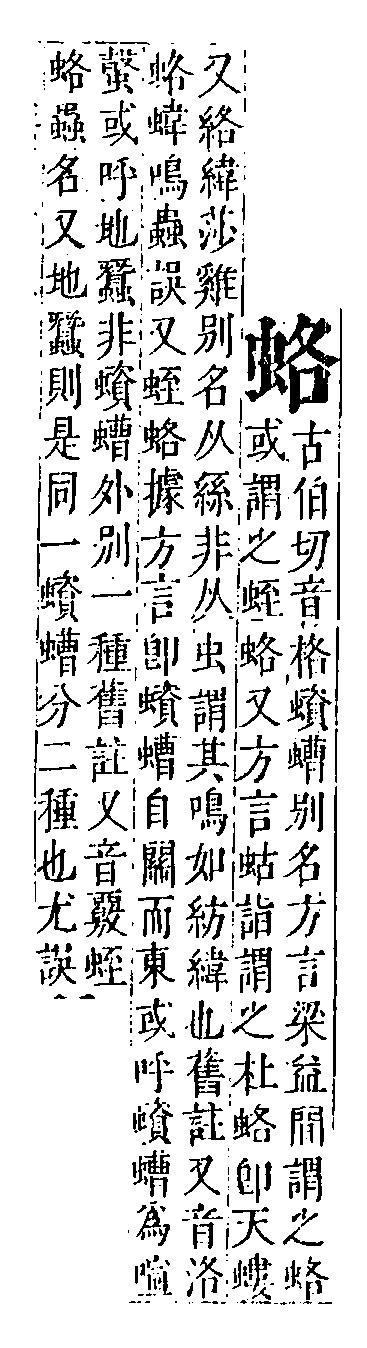 蛒
古伯切音格蠀螬別名方言梁益間謂之蛒
或謂之蛭蛒又方言蛄詣謂之杜蛒卽天螻
又絡緯莎雞別名从絲非从虫謂其鳴如紡緯也舊註又音洛
蛒鳴蟲誤又蛭蛒據方言卽蠀螬自關而東或呼蠀螬爲喧
螜或呼地蠶非蠀螬外別一種舊註又音覈蛭
蛒蟲名又地蠶則是同一蠀螬分二種也尤誤